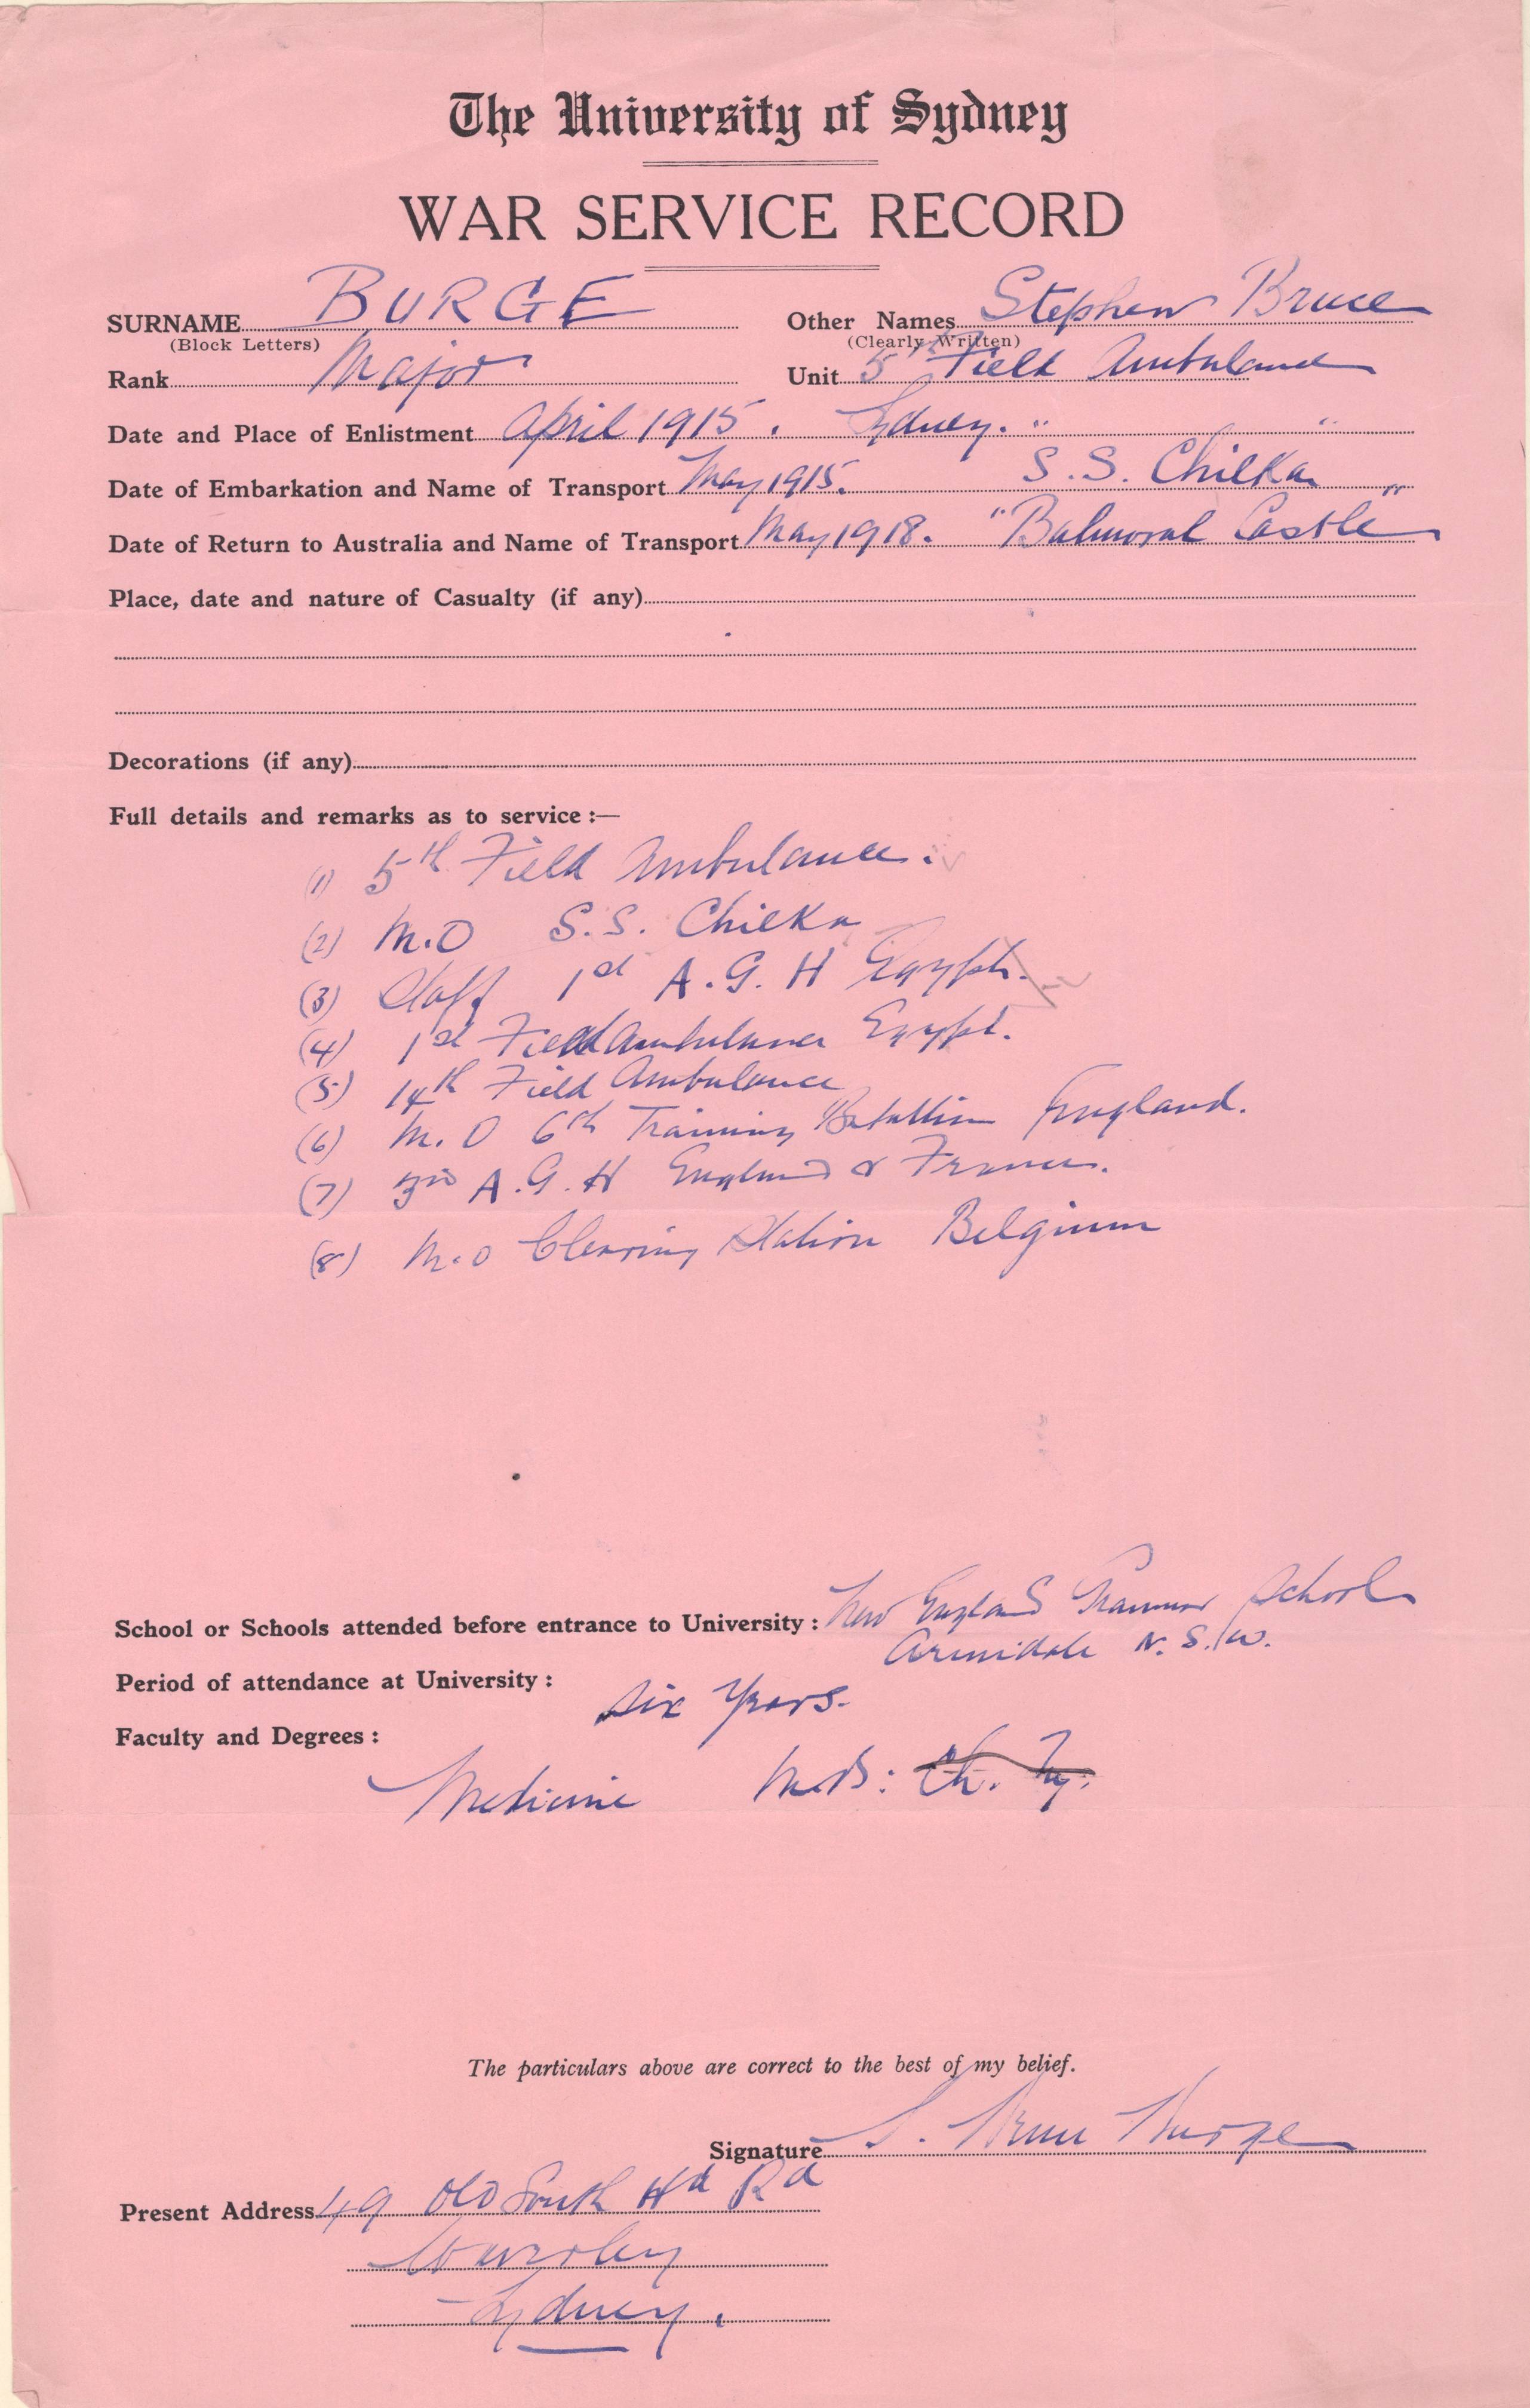 The University of Sydney
WAR SERVICE RECORD
SURNAME BURGE Other Names Stephen Bruce
(Block Letters) (Clearly Written)
Rank Major Unit 5th Field Ambulance
Date and Place of Enlistment April 1915. Sydney.
Date of Embarkation and Name of Transport May 1915. "S.S. Chilka"
Date of Return to Australia and Name of Transport May 1918. "Balmoral Castle"
Place, date and nature of Casualty (if any)
Decorations (if any)
Full details and remarks as to service :—
(1) 5th Field Ambulance.
(2) M.O S.S. Chilka
(3) Staff 1st A.G.H Egypt.
(4) 1st Field Ambulance Egypt.
(5) 14th Field Ambulance
(6) M.O 6th Training Batallion England.
(7) 3rd A.G.H England & France.
(8) M.O Clearing Station Belgium
School or Schools attended before entrance to University : New England Grammar School
Armidale N.S.W.
Period of attendance at University :
Six Years.
Faculty and Degrees :
Medicine M.B: Ch. M.
The particulars above are correct to the best of my belief.
Signature S. Bruce Burge
Present Address 49 Old South Hd Rd
Waverley
Sydney.